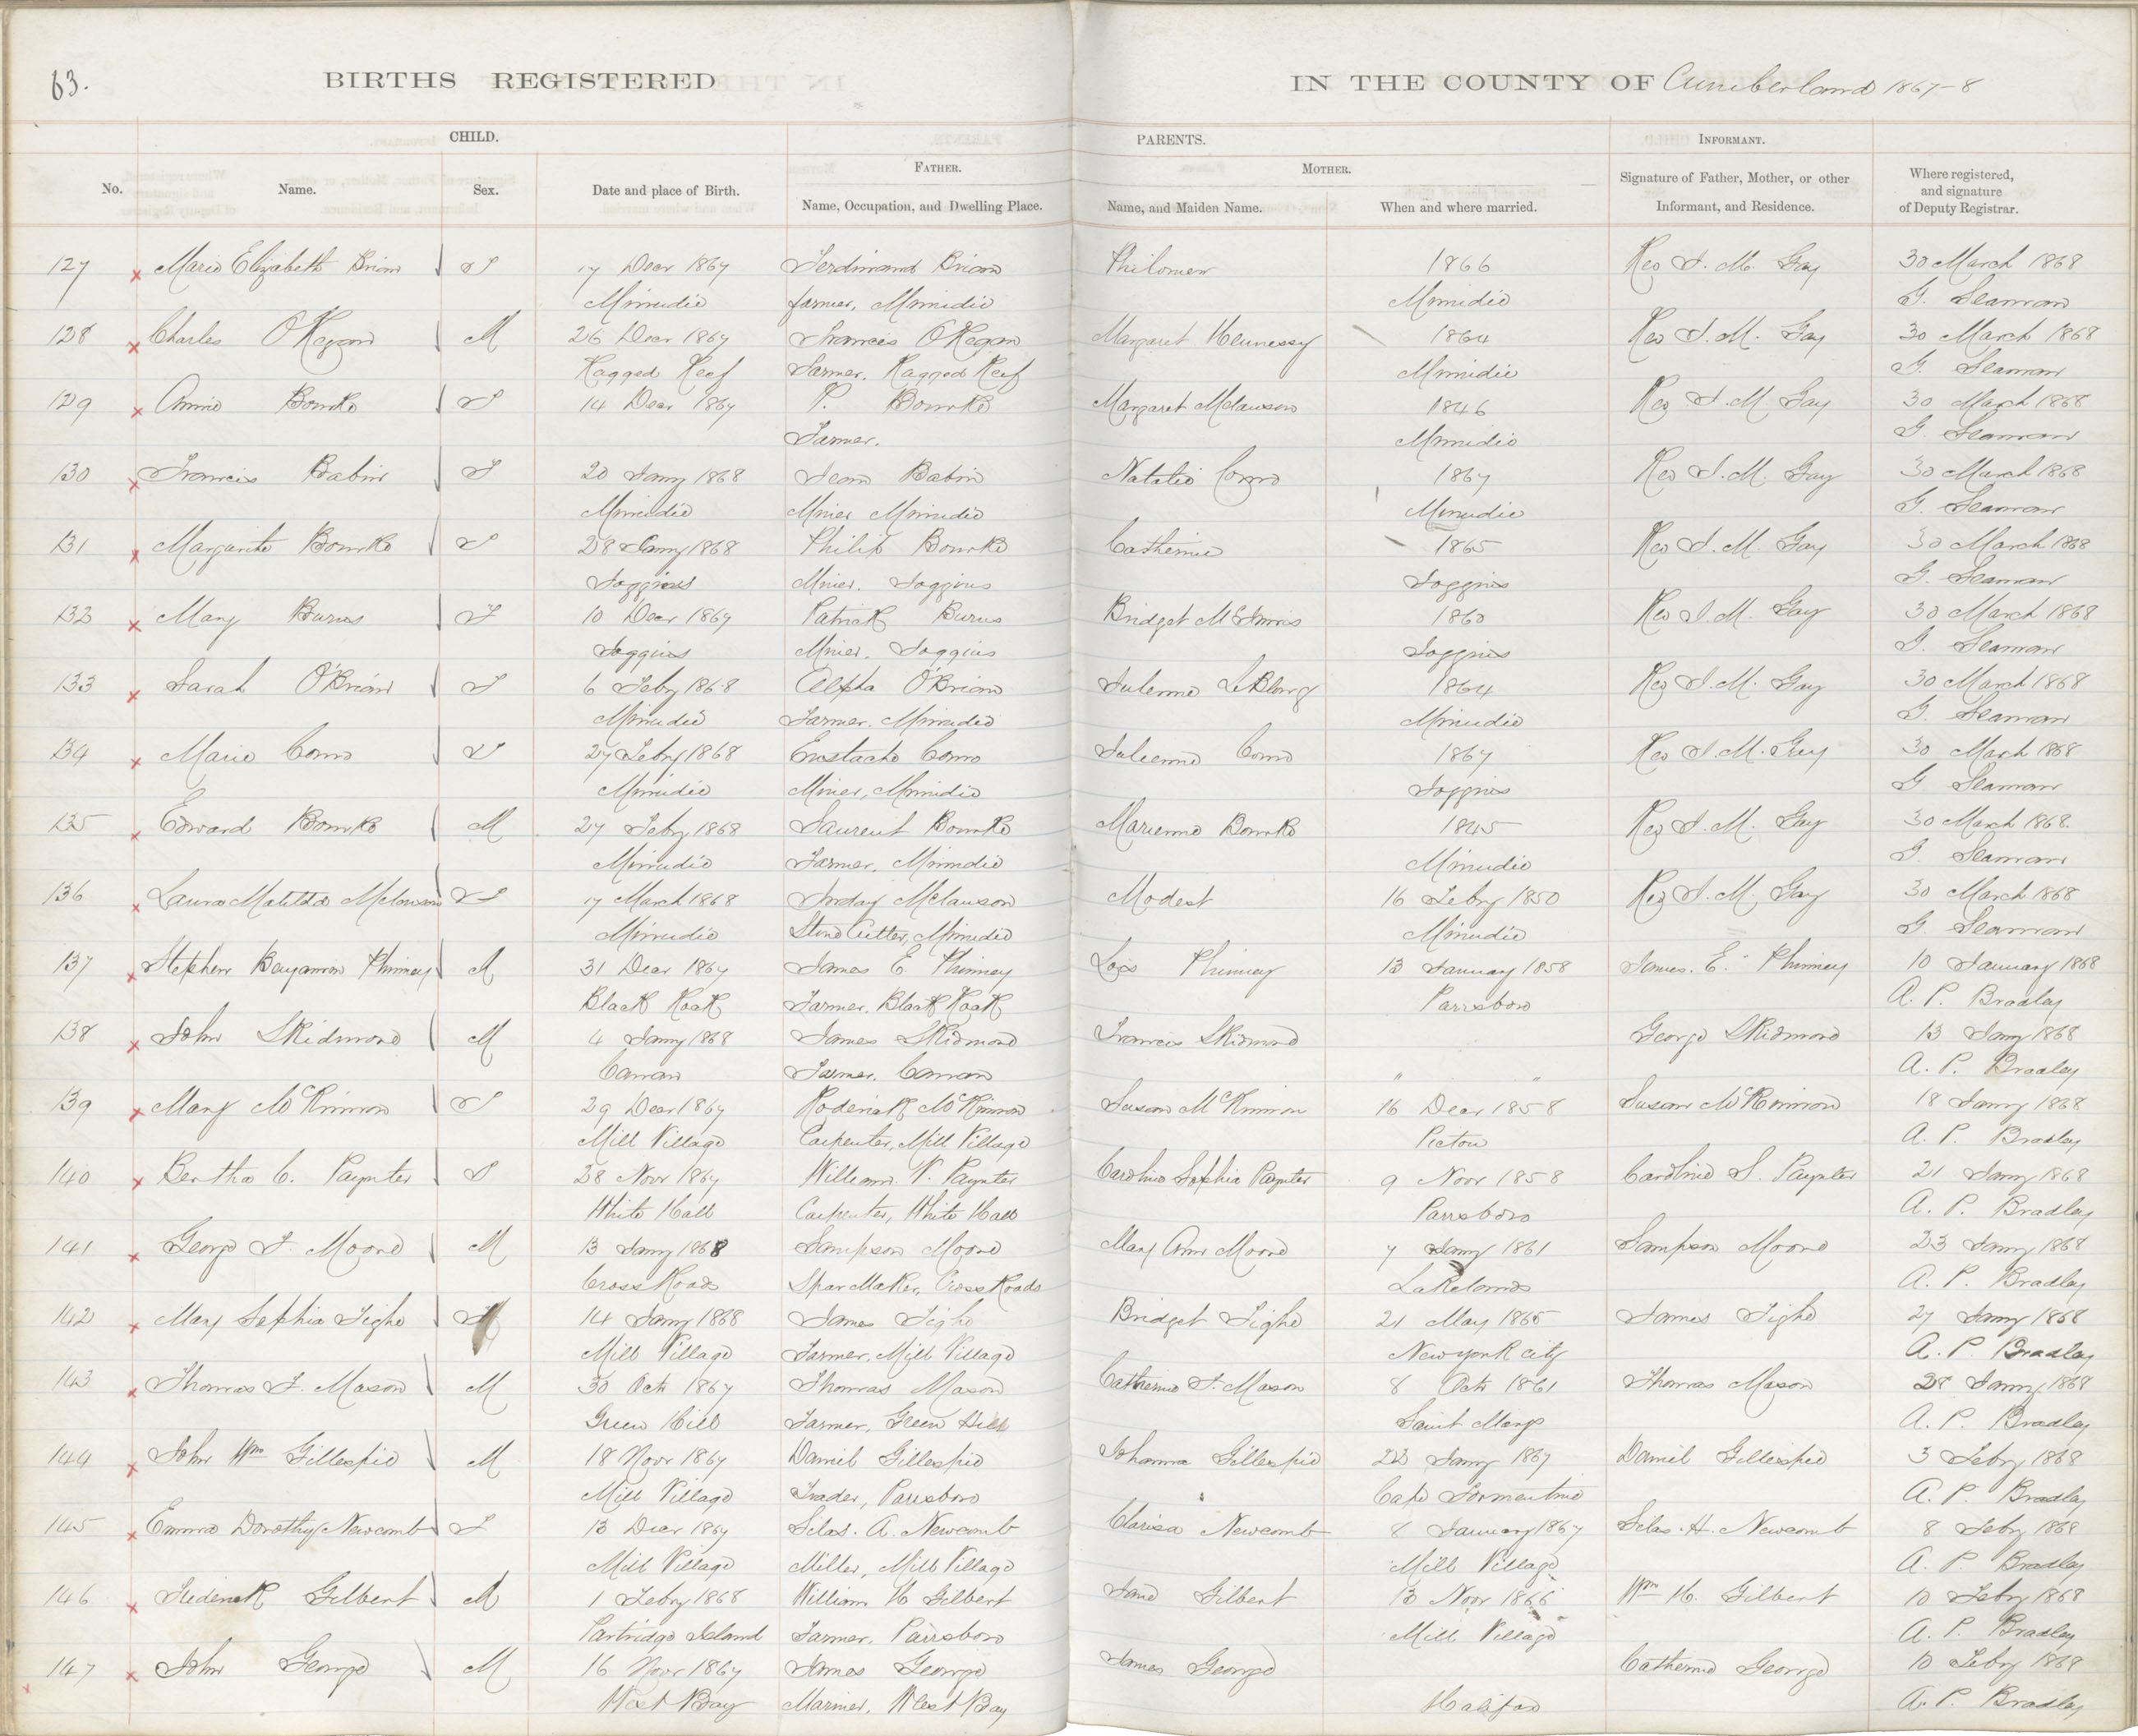 63.
BIRTHS REGISTERED IN THE COUNTY OF Cumberland 1867-8
CHILD. PARENTS. INFORMANT.
FATHER. MOTHER.
No. Name. Sex. Date and place of Birth. Name, Occupation, and Dwelling Place. Name, and Maiden Name. When and where married. Signature of Father, Mother, or other Informant, and Residence. Where registered, and signature of Deputy Registrar.
127 Marie Elizabeth Brian F 17 Decr 1867 Ferdinand Brian Philomen 1866 Rev J. M. Gay 30 March 1868
Minudie farmer, Minudie Minudie G. Seaman
128 Charles O'Regan M 26 Decr 1867 Francis O'Regan Margaret Hennessy 1864 Rev J. M. Gay 30 March 1868
Ragged Reef Farmer. Ragged Reef Minudie G. Seaman
129 Annie Bourke F 14 Decr 1867 P. Bourke Margaret Melanson 1846 Rev J. M. Gay 30 March 1868
Farmer. Minudie G. Seaman
130 Francis Babin F 20 Jany 1868 Jean Babin Natalie Como 1867 Rev J. M. Gay 30 March 1868
Minudie Miner Minudie Minudie G. Seaman
131 Margarite Bourke F 28 Jany 1868 Philip Bourke Catherine 1865 Rev J. M. Gay 30 March 1868
Joggins Miner. Joggins Joggins G. Seaman
132 Mary Burns F 10 Decr 1867 Patrick Burns Bridget 1860 Rev J. M. Gay 30 March 1868
Joggins Miner. Joggins Joggins G. Seaman
133 Sarah O'Brian F 6 Feby 1868 Elpha O'Brian Julenne LeBlong 1864 Rev J. M. Gay 30 March 1868
Minudie Farmer. Minudie Minudie G. Seaman
134 Marie Como F 27 Feby 1868 Eustache Como Julienne Como 1867 Rev J. M. Gay 30 March 1868
Minudie Miner, Minudie Joggins G Seaman
135 Edward Bourke M 27 Feby 1868 Laurent Bourke Marienne Bourke 1845 Rev J. M. Gay 30 March 1868.
Minudie Farmer. Minudie Minudie G. Seaman
136 Laura Matilda Melanson F 17 March 1868 Melanson Modest 16 Feby 1850 Rev J. M. Gay 30 March 1868
Minudie Stone Cutter, Minudie Minudie G Seaman
137 Stephen Benjamin Phinney M 31 Decr 1867 James E. Phinney Lois Phinney 13 January 1858 James. E. Phinney 10 January 1868
Black Rock Farmer. Black Rock Parrsboro A. P. Bradley
138 John Skidmore M 4 Jany 1868 James Skidmore Francis Skidmore George Skidmore 13 Jany 1868
Canaan Farmer. Canaan " " A. P. Bradley
139 Mary McKinnon F 29 Decr 1867 Roderick McKinnon Susan McKinnon 16 Decr 1858 Susan McKinnon 18 Jany 1868
Mill Village Carpenter, Mill Village Pictou A. P. Bradley
140 Bertha C. Paynter F 28 Novr 1867 William. V. Paynter Caroline Sophia Paynter 9 Novr 1858 Caroline S. Paynter 21 Jany 1868
White Hall Carpenter, White Hall Parrsboro A. P. Bradley
141 George F. Moore M 13 Jany 1868 Sampson Moore Mary Ann Moore 7 Jany 1861 Sampson Moore 23 Jany 1868
Cross Roads Spar Maker, Cross Roads Lakelands A. P. Bradley
142 Mary Sophia Tighe 14 Jany 1868 James Tighe Bridget Tighe 21 May 1865 James Tighe 27 Jany 1868
Mill Village Farmer, Mill Village New York city A. P. Bradley
143 Thomas F. Mason M 30 Octr 1867 Thomas Mason Catherine F. Mason 8 Octr 1861 Thomas Mason 28 Jany 1868
Green Hill Farmer, Green Hill Saint Marys A. P. Bradley
144 John Wm Gillespie M 18 Novr 1867 Daniel Gillespie Johanna Gillespie 23 Jany 1867 Daniel Gillespie 3 Feby 1868
Mill Village Trader, Parrsboro Cape Tormentine A. P. Bradley
145 Emma Dorothy Newcomb F 13 Decr 1867 Silas. A. Newcomb Clarisa Newcomb 8 January 1867 Silas. H. Newcomb 8 Feby 1868
Mill Village Miller, Mill Village Mill Village A. P. Bradley
146 Frederick Gilbert M 1 Feby 1868 William H Gilbert Jane Gilbert 13 Novr 1866 Wm H. Gilbert 10 Feby 1868
Partridge Island Farmer. Parrsboro Mill Village A. P. Bradley
147 John George M 16 Novr 1867 James George James George Catherine George 10 Feby 1868
West Bay Mariner. West Bay Halifax A. P. Bradley